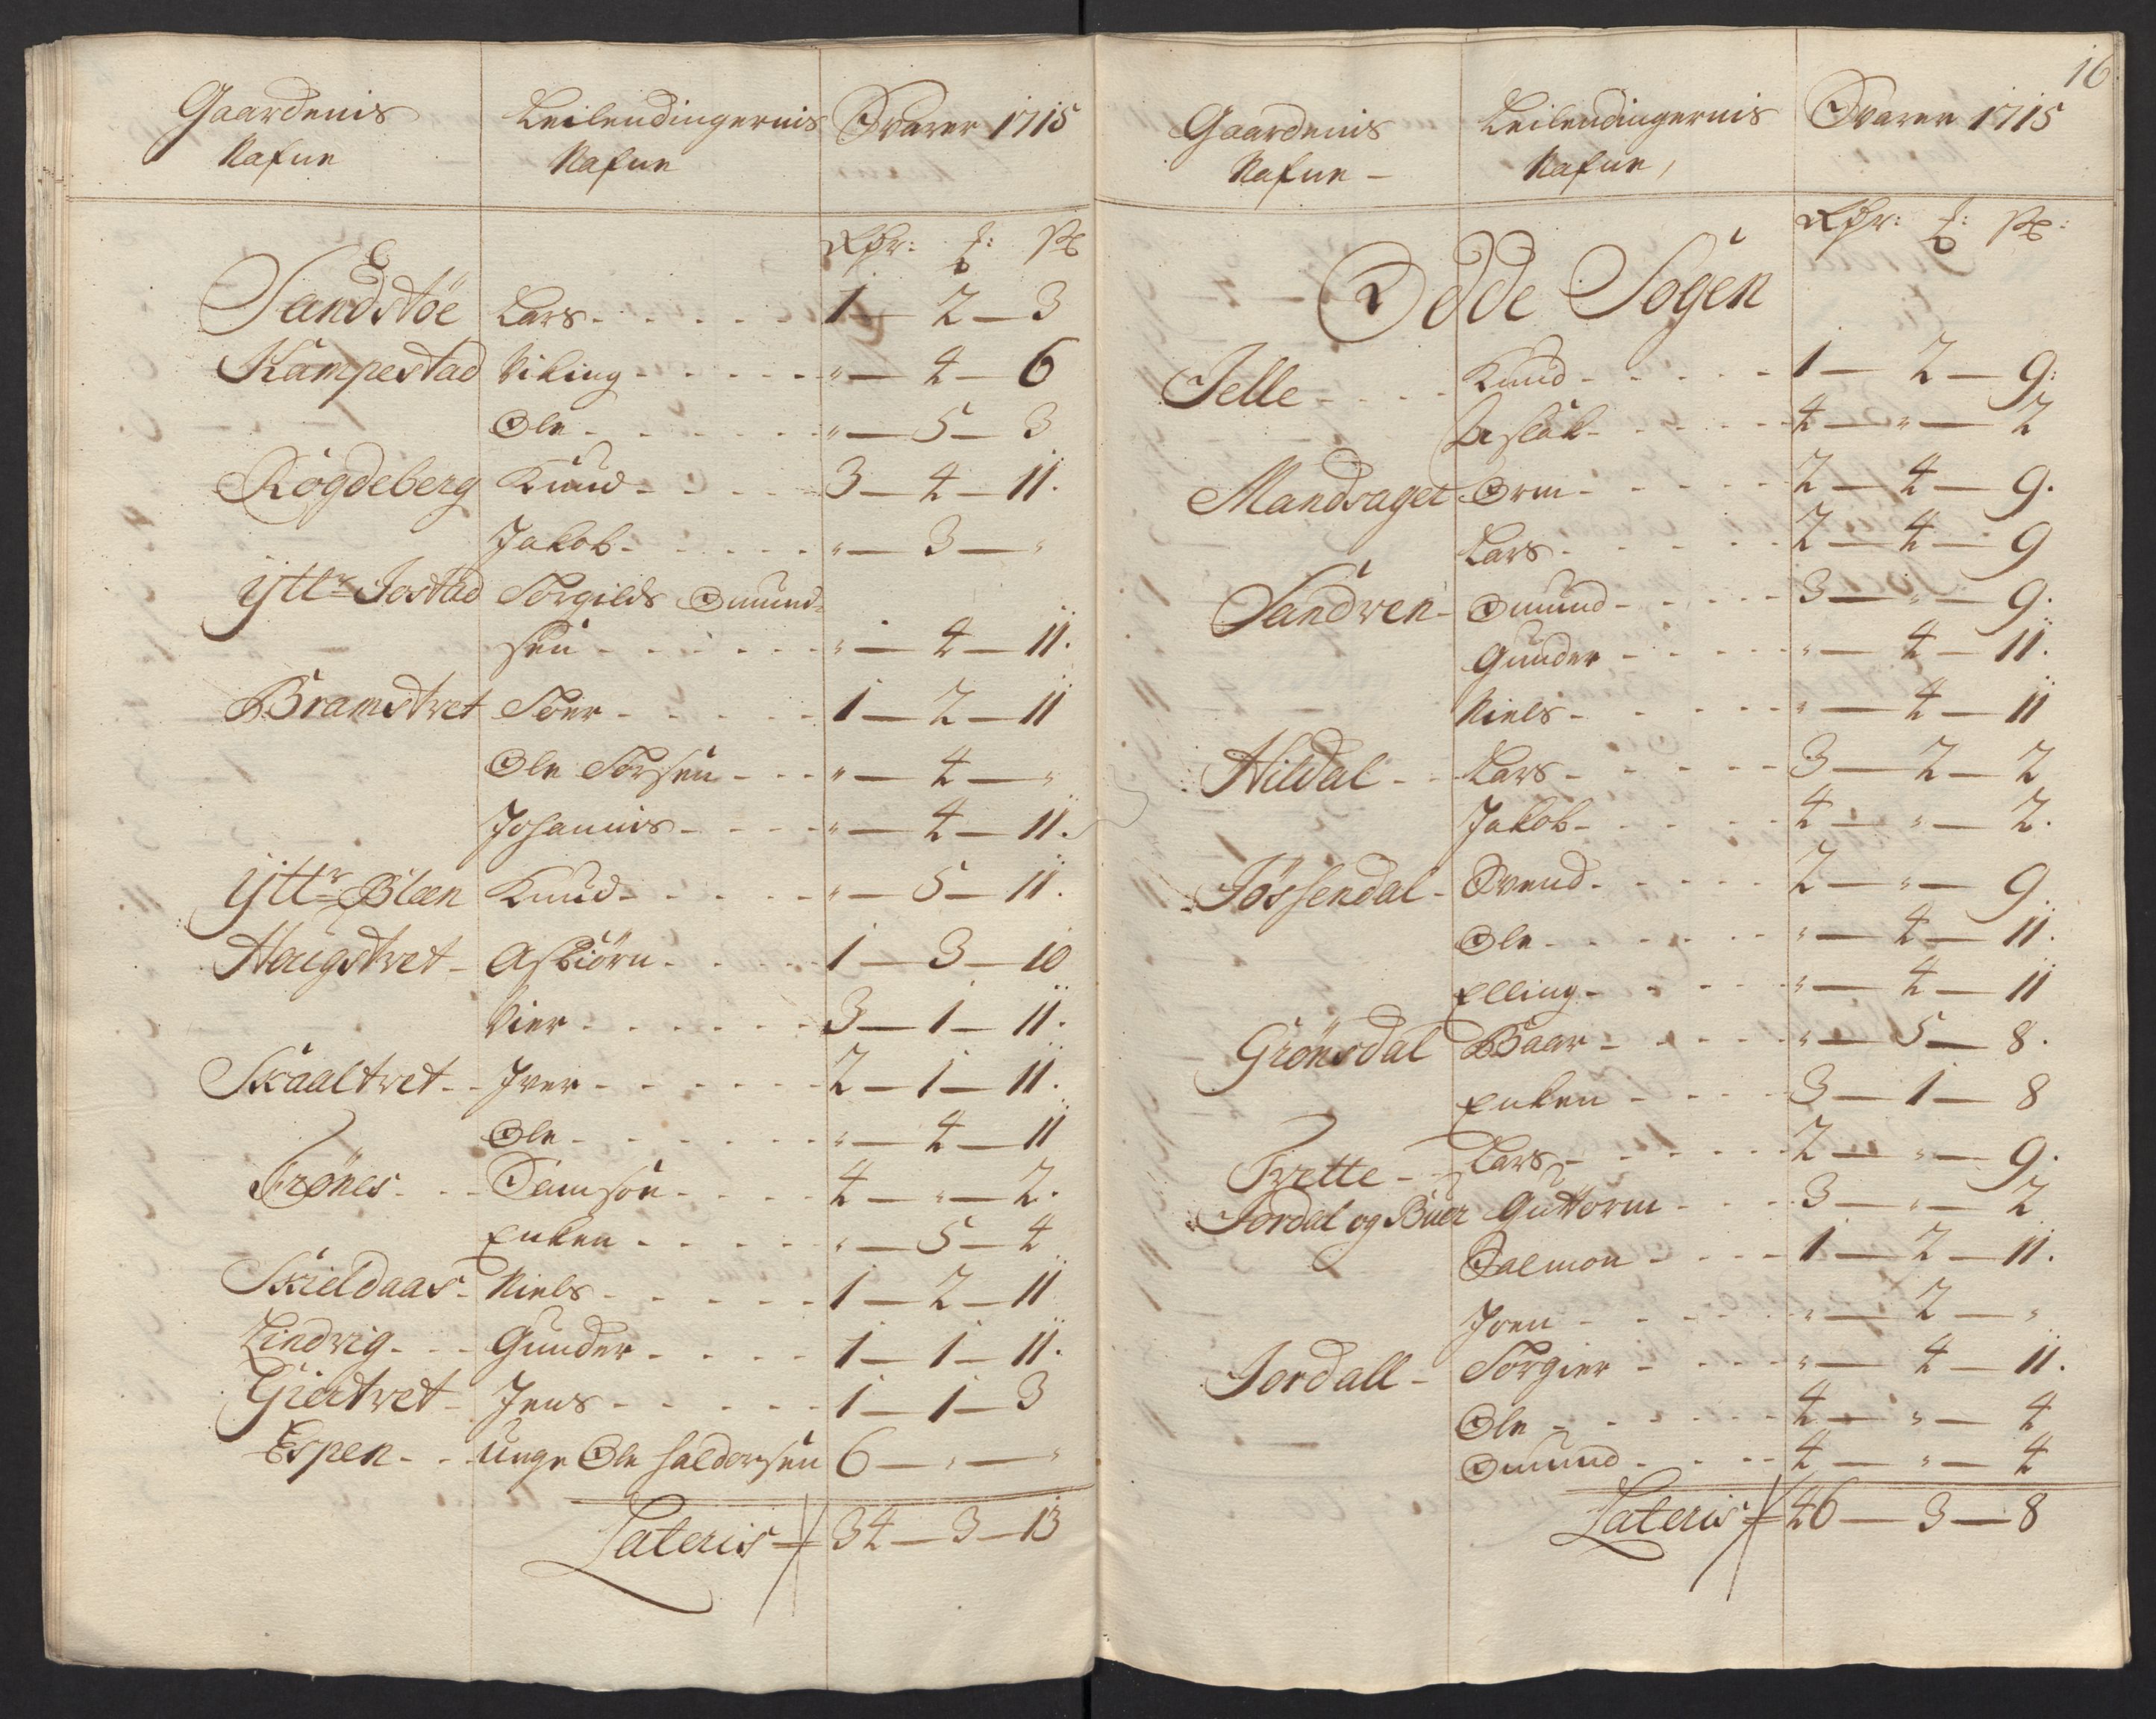 Gaardenis Nafne
Leilendingernis Nafne
Svarer 1715
Rdr: ƒ: ß
Sandstöe Lars - - - - - 1 — 2 — 3
Kampestad Viking - - - - - " — 4 — 6
Ole - - - - - " — 5 — 3
Rogdeberg Knud - - - - 3 — 4 — 11.
Jakob - - - - - " — 3 — "
Ÿttr Jostad Torgilds Omund-
sen - - - - - " — 4 — 11.
Bramstvet Toer - - - - - 1 — 2 — 11
Ole Torsen - - - " — 4 — "
Johannis - - - - " — 4 — 11.
Ÿttr Blæn Knud - - - - - " — 5 — 11.
Haugstvet - Asbiörn - - - - 1 — 3 — 10
Vier - - - - - - 3 — 1 — 11.
Skaaltvet - - Iver - - - - - - 2 — 1 — 11.
Ole - - - - - - " — 4 — 11
Trönes - - - Samson - - - - 4 — " — 2.
Enken - - - - - " — 5 — 4
Skieldaas - Niels - - - - - 1 — 2 — 11
Lindvig - - - Gunder - - - - 1 — 1 — 11.
Giertvet - Jens - - - - - 1 — 1 — 3
Espen - - - Unge Ole Haldorsen 6 — " — "
Lateris 34 — 3 — 13
16
Gaardenis Nafne -
Leilendingernis Nafne,
Svarer 1715
Rdr: ƒ: ß:
Odde Sogen
Jelle - - - - Knud - - - - - 1 — 2 — 9:
Aslak - - - - - 4 — " — 2
Mandsaget Orm - - - - - 2 — 4 — 9.
Lars - - - - - 2 — 4 — 9
Sandven - Omund - - - - - 3 — " — 9.
Gunder - - - - - " — 4 — 11.
Niels - - - - - " — 4 — 11
Hildal - - Lars - - - - - 3 — 2 — 2
Jakob - - - - - 4 — " — 2.
Jössendal - Svend - - - - - 2 — " — 9
Ole - - - - - - " — 4 — 11.
Elling - - - - - " — 4 — 11
Grönsdal Baar - - - - - " — 5 — 8.
Enken - - - - 3 — 1 — 8
Tvette - - Lars - - - - - - 2 — " — 9.
Jordal og Buer Guttorm - - - - 3 — " — 2
Salmon - - - - 1 — 2 — 11.
Joen - - - - - " — 2 — "
Jordall - Torgier - - - - " — 4 — 11.
Ole - - - - - - 4 — " — 4
Omund - - - - 4 — " — 4
Lateris 46 — 3 — 8